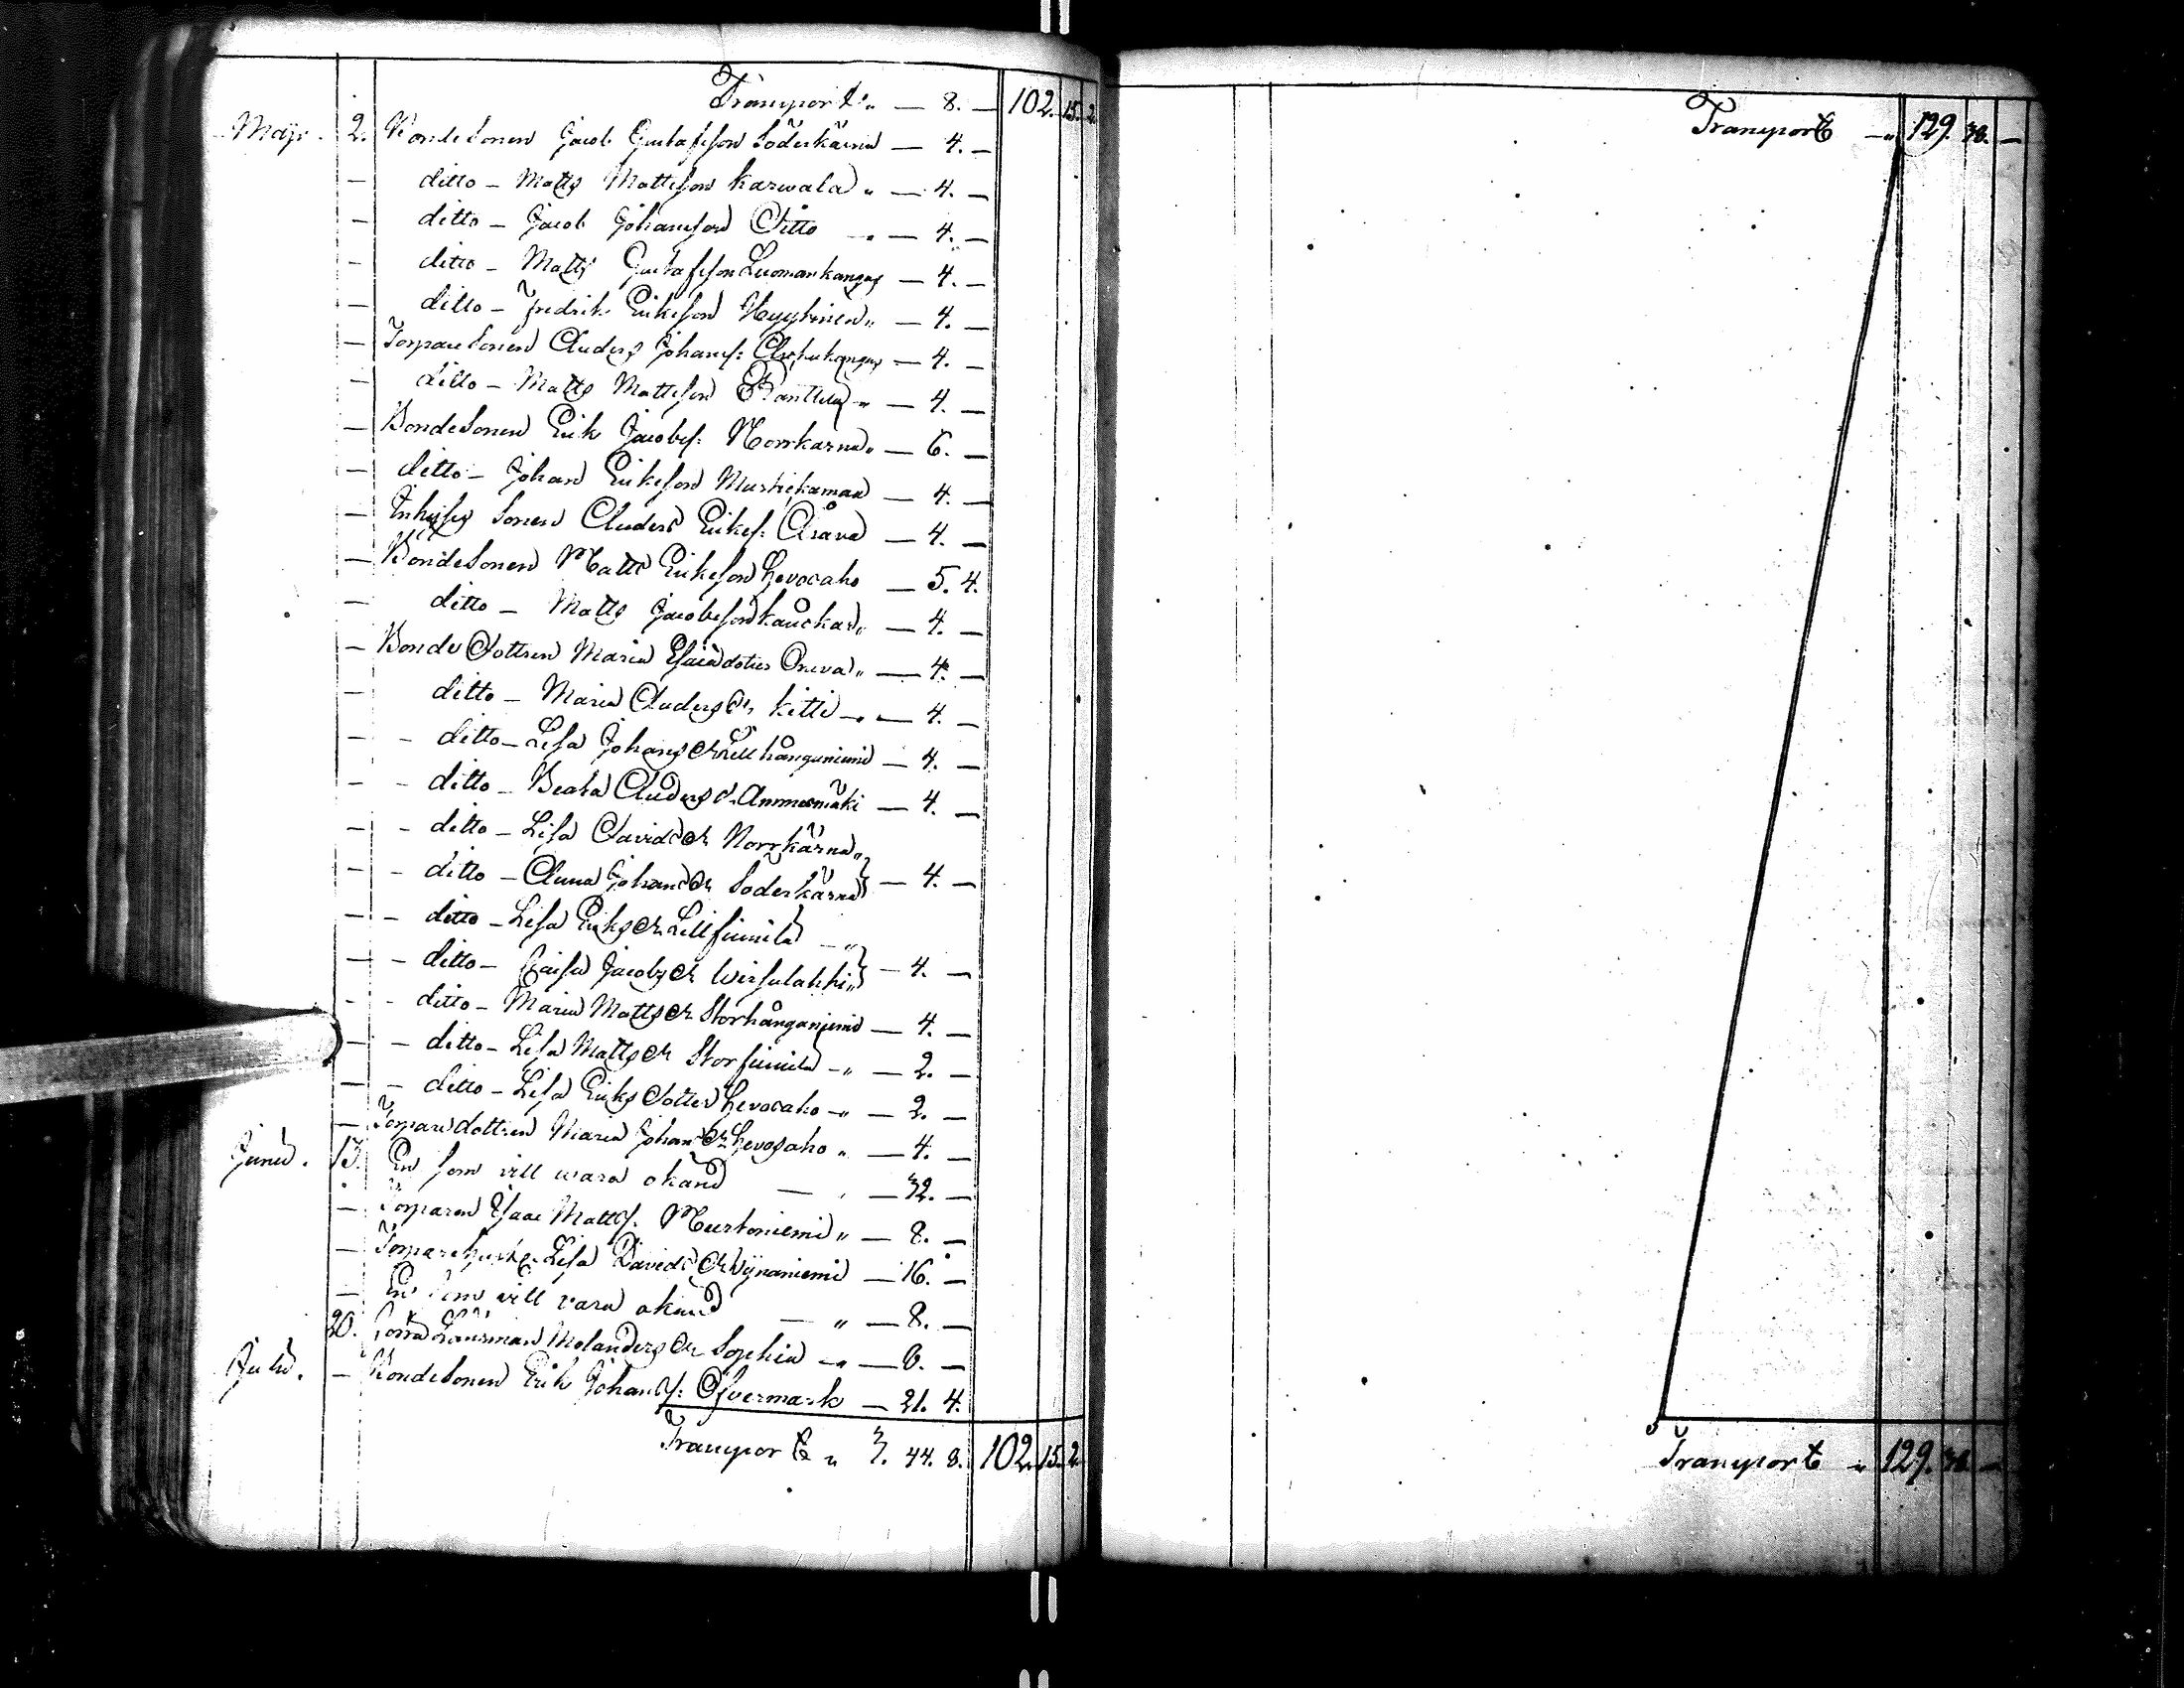 Transport „ — 8. — 102. 15. 2.
Maji. 2. Bondesonen Jacob Gustafsson Söderkärna — 4. —
— ditto — Matts Mattsson Karwala „ — 4. —
— ditto — Jacob Johansson Ditto „ — 4. —
— ditto — Matts Gustafsson Luomankangas — 4. —
— ditto — Fredrik Eriksson Hyytinen „ — 4. —
— Torparesonen Anders Johans: — 4. —
— ditto — Matts Mattsson „ — 4. —
— Bondesonen Erik Jacobs: Norrkärna „ — 6. —
— ditto — Johan Eriksson — 4. —
— Inhyses sonen Anders Eriks: — 4. —
— Bondesonen Matts Eriksson Hevosaho — 5. 4.
— ditto — Matts Jacobsson „ — 4. —
— Bonde Dottren Maria Esaiadotter „ — 4. —
— ditto — Maria Anders Dr Kitti „ — 4. —
— - ditto — Lisa Johans Dr Lillhånganiemi — 4. —
— - ditto — Beata Anders d. Ammesmäki — 4. —
— - ditto — Lisa Davids Dr Norrkärna „
— - ditto — Anna Johans Dr Söderkärna } — 4. —
— - ditto — Lisa Eriks Dr Lillfinnilä — „
— - ditto — Caisa Jacobs Dr Wirsulahhi „ } — 4. —
- - ditto — Maria Matts Dr Storhånganiemi — 4. —
— - ditto — Lisa Matts Dr Storfinnilä — „ — 2. —
— - ditto — Lisa Eriks Dotter Hevosaho — „ — 2. —
— Torparedottren Maria Johans Dr Hevosaho „ — 4. —
Junii. 13. En som vill wara okänd — „ — 32. —
— Torparen Isaac Matts: Murtoniemi „ — 8. —
— Torparehust. Lisa Davids Dr Wynaniemi — 16. —
— En som vill vara okänd — „ — 8. —
20. Länsman Molanders Dr Sophia — „ — 6. —
Julii. — Bondesonen Erik Johans: Öfvermark — 21. 4.
Transport „ 3. 44. 8. 102. 15. 2.
Transport — „ 129. 38. —
Transport „ 129. 38. —